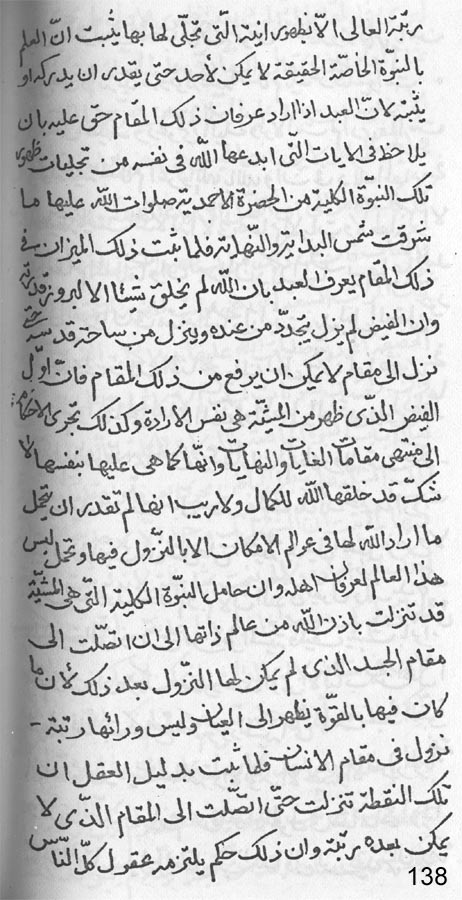 رتبة العالى الّا بظهور انية الّتى تجلّى لها بها يثبت انّ العلم
بالنبوّة الخاصّة الحقيقة لا يمكن لأحد حتى يقدر ان يدركه او
يثبته لانّ العبد اذا اراد عرفان ذلك المقام حق عليه بان
يلاحظ فى الايات التى ابدعها الله فى نفسه من تجليات ظهور
تلك النبوّة الكلية من الحضرة الاحمدية صلوات الله عليها ما
شرقت شمس البداية والنّهاية فلما ثبت ذلك الميزان فى
ذلك المقام يعرف العبد بان الله لم يخلق شيئا الا لبروز قدرته
وان الفيض لم يزل يتجدّد من عنده وينزل من ساحة قدسه حتى
نزل الى مقام لا يمكن ان يرفع من ذلك المقام فانّ اوّل
الفيض الّذى ظهر من المشيّة هى نفس الارادة وكذلك تجرى الاحكام
الى منتهى مقامات الغايات والنهايات وانّها كما هى عليها بنفسها لا
شكّ قد خلقها الله للكمال ولا ريب انها لم تقدر ان يتحمل
ما اراد الله لها فى عوالم الامكان الا بالنزّول فيها وتحمل ليس
هذا العالم لعرفان اهله وان حامل النبوّة الكلية الّتى هى المشيّة
قد تنزلت باذن الله من عالم ذاتها الى ان اتصّلت الى
مقام الجسد الّذى لم يمكن لها النزّول بعد ذلك لأن ما
كان فيها بالقوّة يظهر الى العيان وليس ورائها رتبة -
نزول فى مقام الانسان فلما ثبت بدليل العقل ان
تلك النقطة تنزلت حتّى اتصّلت الى المقام الّذى لا
يمكن بعده رتبة وان ذلك حكم يلتزمه عقول كلّ النّاس
138